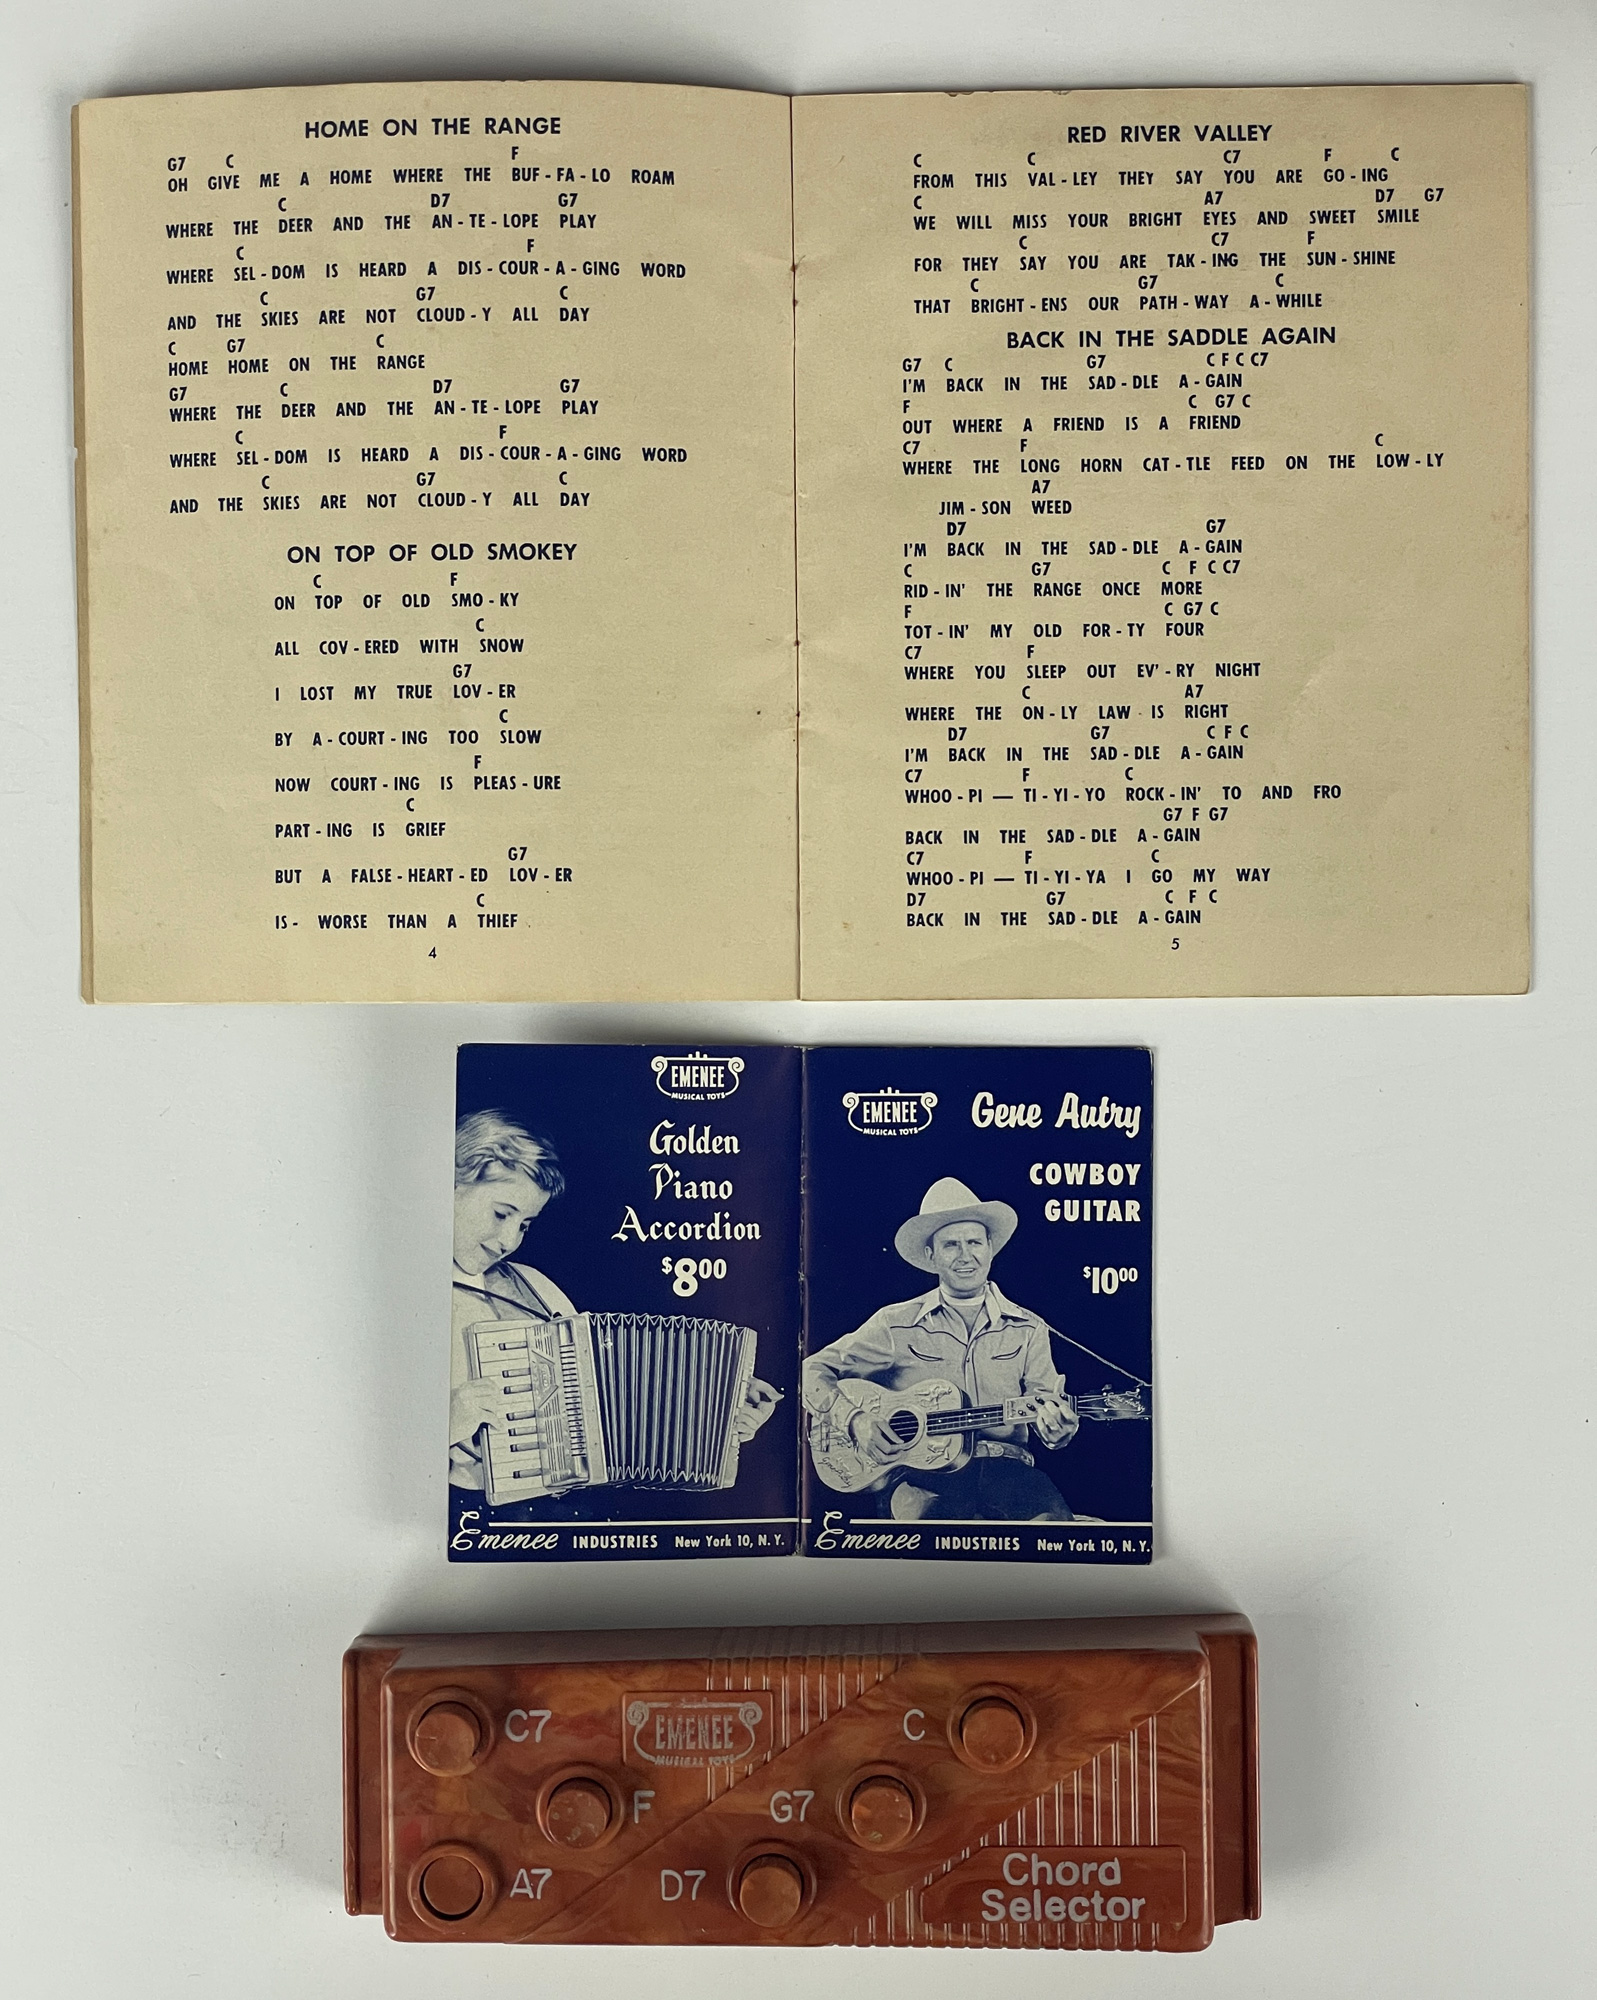 HOME ON THE RANGE
G7 C F
OH GIVE ME A HOME WHERE THE BUF - FA - LO ROAM
C D7 G7
WHERE THE DEER AND THE AN - TE - LOPE PLAY
C F
WHERE SEL - DOM IS HEARD A DIS - COUR - A - GING WORD
C G7 C
AND THE SKIES ARE NOT CLOUD - Y ALL DAY
C G7 C
HOME HOME ON THE RANGE
G7 C D7 G7
WHERE THE DEER AND THE AN - TE - LOPE PLAY
C F
WHERE SEL - DOM IS HEARD A DIS - COUR - A - GING WORD
C G7 C
AND THE SKIES ARE NOT CLOUD - Y ALL DAY
ON TOP OF OLD SMOKEY
C F
ON TOP OF OLD SMO - KY
C
ALL COV - ERED WITH SNOW
G7
I LOST MY TRUE LOV - ER
C
BY A - COURT - ING TOO SLOW
F
NOW COURT - ING IS PLEAS - URE
C
PART - ING IS GRIEF
G7
BUT A FALSE - HEART - ED LOV - ER
C
IS - WORSE THAN A THIEF
4
RED RIVER VALLEY
C C C7 F C
FROM THIS VAL - LEY THEY SAY YOU ARE GO - ING
C A7 D7 G7
WE WILL MISS YOUR BRIGHT EYES AND SWEET SMILE
C C7 F
FOR THEY SAY YOU ARE TAK - ING THE SUN - SHINE
C G7 C
THAT BRIGHT - ENS OUR PATH - WAY A - WHILE
BACK IN THE SADDLE AGAIN
G7 C G7 C F C C7
I'M BACK IN THE SAD - DLE A - GAIN
F C G7 C
OUT WHERE A FRIEND IS A FRIEND
C7 F C
WHERE THE LONG HORN CAT - TLE FEED ON THE LOW - LY
A7
JIM - SON WEED
D7 G7
I'M BACK IN THE SAD - DLE A - GAIN
C G7 C F C C7
RID - IN' THE RANGE ONCE MORE
F C G7 C
TOT - IN' MY OLD FOR - TY FOUR
C7 F
WHERE YOU SLEEP OUT EV' - RY NIGHT
C A7
WHERE THE ON - LY LAW IS RIGHT
D7 G7 C F C
I'M BACK IN THE SAD - DLE A - GAIN
C7 F C
WHOO - PI — TI - YI - YO ROCK - IN' TO AND FRO
G7 F G7
BACK IN THE SAD - DLE A - GAIN
C7 F C
WHOO - PI — TI - YI - YA I GO MY WAY
D7 G7 C F C
BACK IN THE SAD - DLE A - GAIN
5
EMENEE
MUSICAL TOYS
Golden
Piano
Accordion
$8.00
Emenee INDUSTRIES New York 10, N. Y.
EMENEE
MUSICAL TOYS
Gene Autry
COWBOY
GUITAR
$10.00
Emenee INDUSTRIES New York 10, N. Y.
C7
EMENEE
MUSICAL TOYS
C
F
G7
A7
D7
Chord
Selector